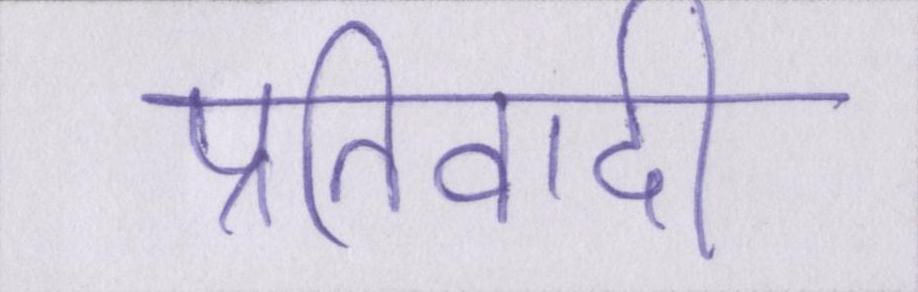 प्रतिवादी